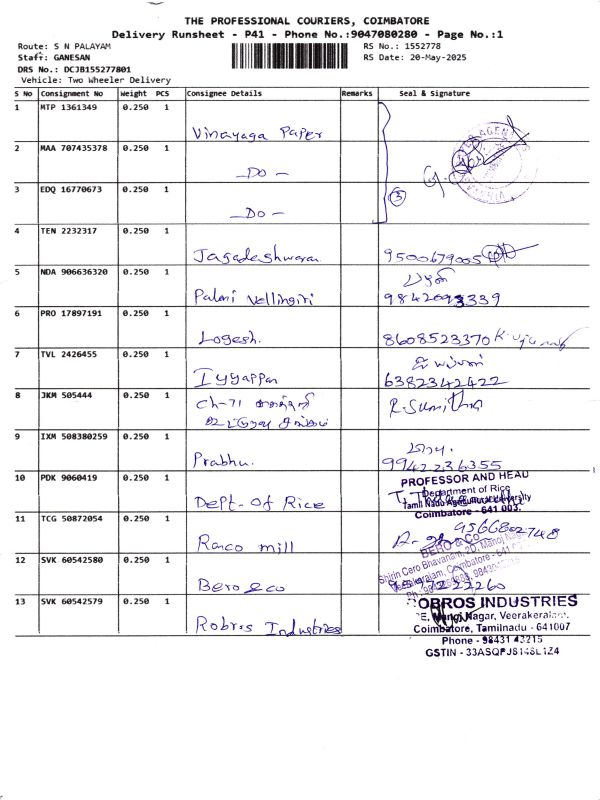 THE PROFESSIONAL COURIERS, COIMBATORE
Delivery Runsheet - P41 - Phone No.:9047080280 - Page No.:1
Route: S N PALAYAM
RS No.: 1552778
Staff: GANESAN
RS Date: 20-May-2025
DRS No.: DCJB155277801
Vehicle: Two Wheeler Delivery
S No Consignment No Weight PCS Consignee Details Remarks Seal & Signature
1 MTP 1361349 0.250 1
Vinayaga Paper
2 MAA 707435378 0.250 1
-Do-
3 EDQ 16770673 0.250 1
-Do- 3
4 TEN 2232317 0.250 1
Jagadeshwaran 9500679005
5 NDA 906636320 0.250 1
Palani Vellingiri 9842093339
6 PRO 17897191 0.250 1
Logesh. 8608523370
7 TVL 2426455 0.250 1
Iyyappan 6382342422
8 JKM 505444 0.250 1
Ch-71 R. Sumithra
9 IXM 508380259 0.250 1
Prabhu. 9942236355
10 PDK 9060419 0.250 1
PROFESSOR AND HEAD
Department of Rice
Dept. Of Rice Tamil Nadu Agricultural University
Coimbatore - 641 003.
11 TCG 50872054 0.250 1
9566802748
Ranco mill
BERO & CO
12 SVK 60542580 0.250 1
Shirin Cero Bhavanam, 2D, Manoj Nagar
Veerakeralam, Coimbatore - 641
Bero & co
13 SVK 60542579 0.250 1
ROBROS INDUSTRIES
Nagar, Veerakeralam,
Robros Industries Coimbatore, Tamilnadu - 641007
Phone - 98431 43215
GSTIN -